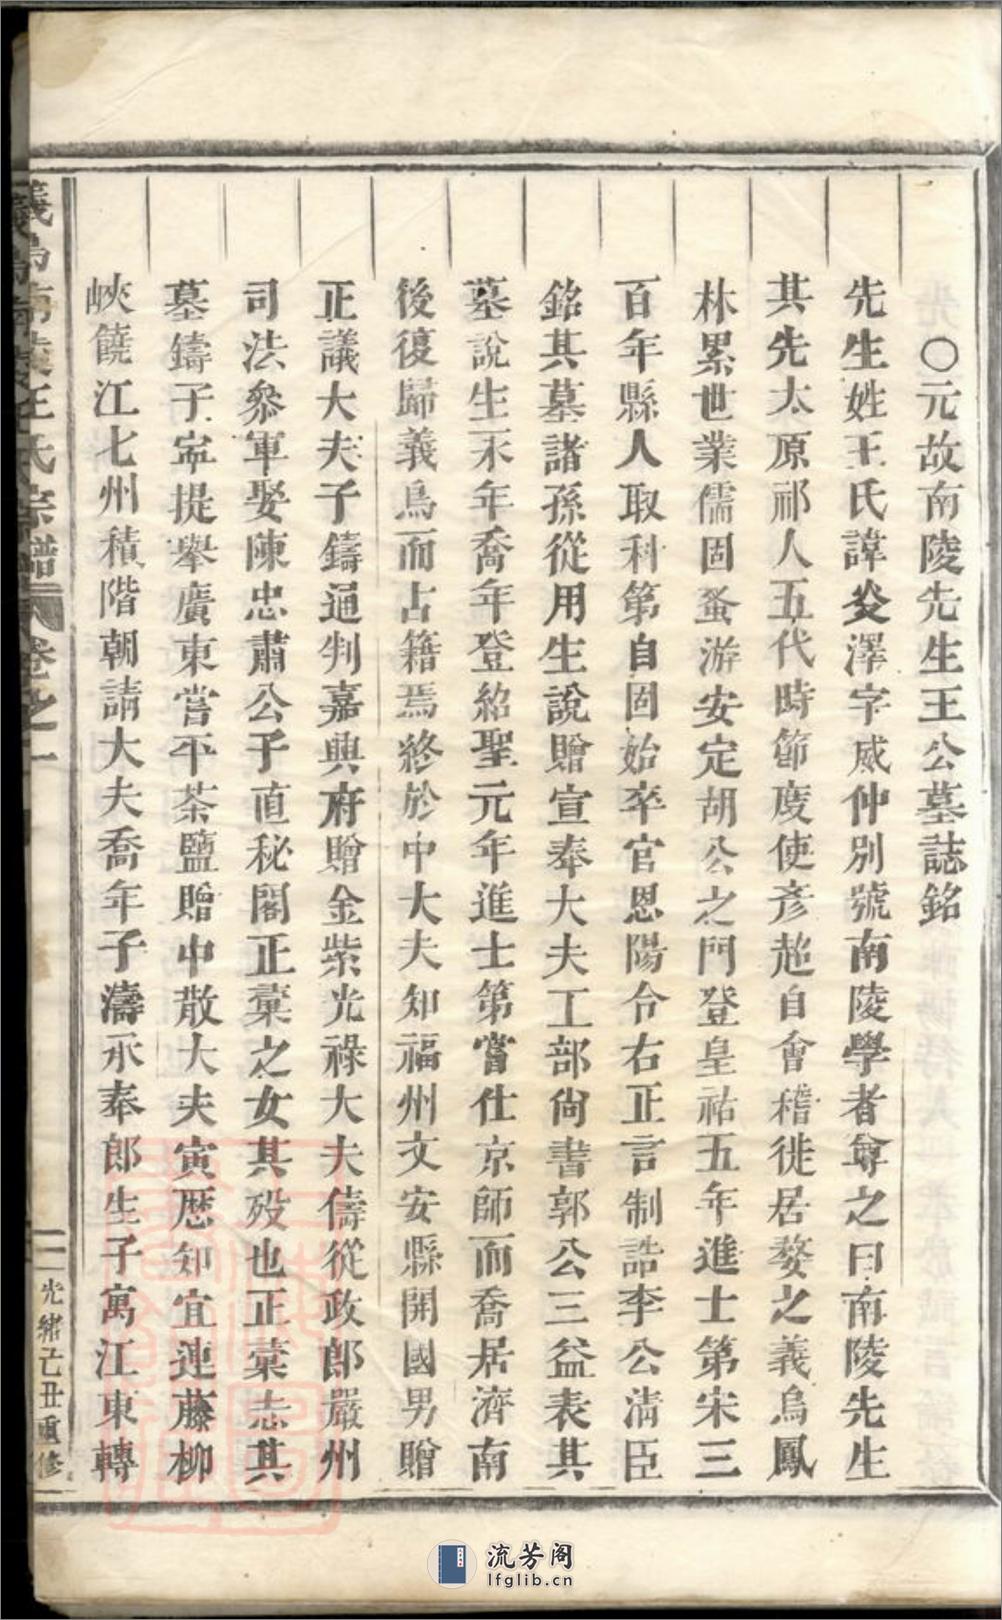 ○元故南陵先生王公墓誌銘
先生姓王氏諱炎澤字威仲別號南陵學者尊之曰南陵先生
其先太原祁人五代時節度使彥超自會稽徙居婺之義烏鳳
林累世業儒固蚤游安定胡公之門登皇祐五年進士第宋三
百年縣人取科第自固始卒官恩陽令右正言制誥李公清臣
銘其墓諸孫從用生說贈宣奉大夫工部尚書郭公三益表其
墓說生永年喬年登紹聖元年進士第嘗仕京師而喬居濟南
後復歸義烏而占籍焉終於中大夫知福州文安縣開國男贈
正議大夫子鑄通判嘉興府贈金紫光祿大夫儔從政郎嚴州
司法參軍娶陳忠肅公子直秘閣正彙之女其歿也正彙志其
墓鑄子寧提舉廣東嘗平茶鹽贈中散大夫寅歷知宜連藤柳
峽饒江七州積階朝請大夫喬年子濤承奉郎生子寓江東轉
義烏南陵王氏宗譜 卷之一
一 光緒乙丑重修
流芳阁
lfglib.cn